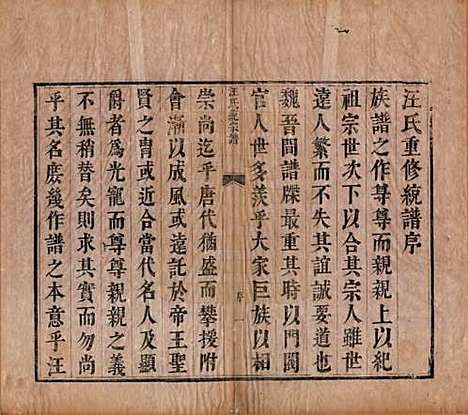 汪氏重修統譜序
族譜之作尊尊而親親上以紀
祖宗世次下以合其宗人雖世
遠人繁而不失其誼誠要道也
魏晉間譜牒最重其時以門閥
官人世多羨乎大家巨族以相
汪氏統宗譜
序
一
崇尚迄乎唐代猶盛而攀援附
會漸以成風或遠託於帝王聖
賢之胄或近合當代名人及顯
爵者爲光寵而尊尊親親之義
不無稍替矣則求其實而勿尚
乎其名庶幾作譜之本意乎汪